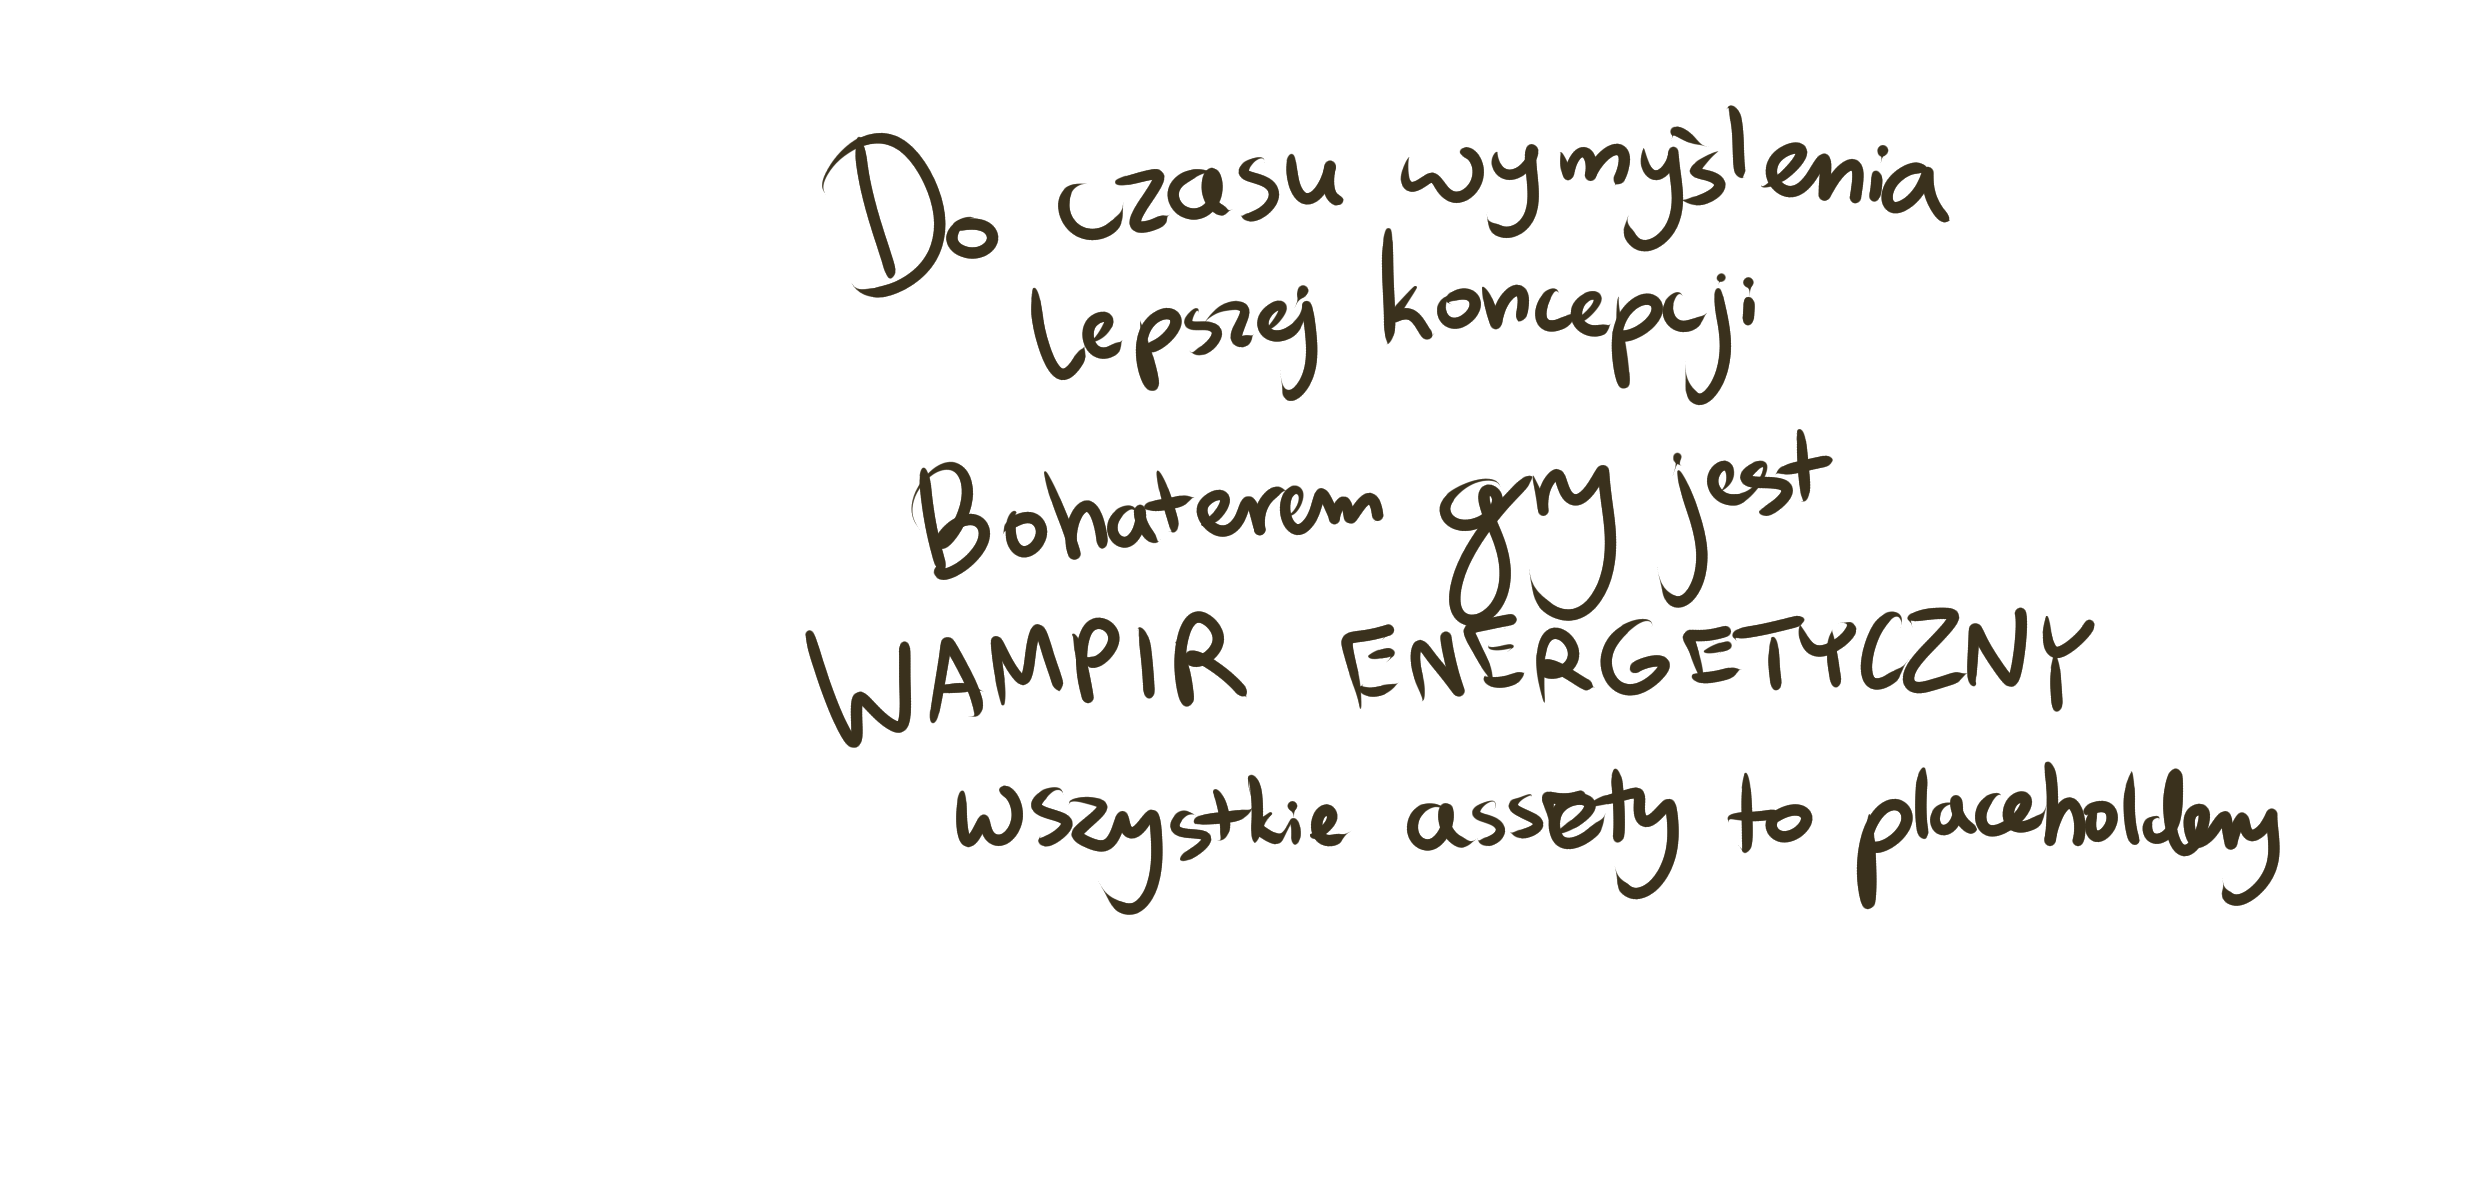 Do czasu wymyślenia
lepszej koncepcji
Bohaterem gry jest
WAMPIR ENERGETYCZNY
wszystkie assety to placeholdery